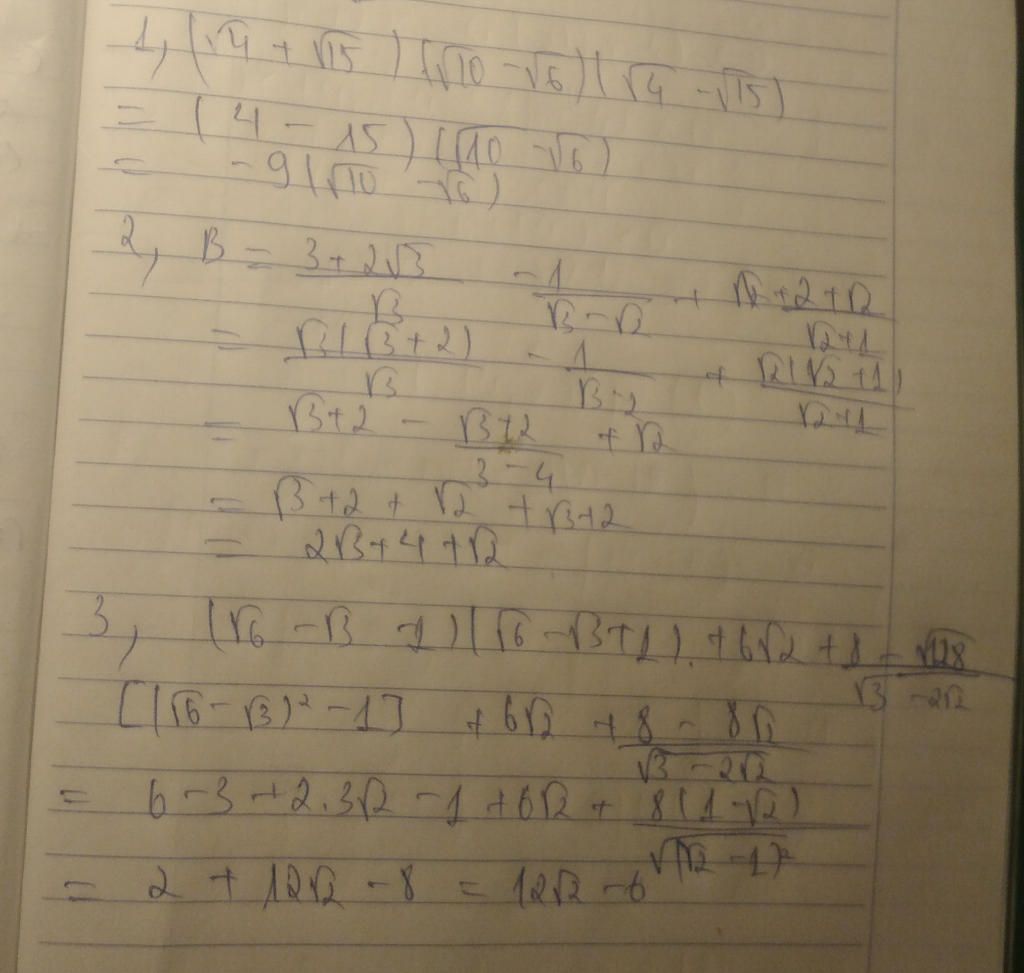 1, (√4 + √15)(√10 - √6)(√4 - √15)
= (4 - 15)(√10 - √6)
= -9(√10 - √6)
2, B = (3+2√3)/√3 - 1/(√3-√2) + (2+√2)/(√2+1)
= √3(√3+2)/√3 - 1/(√3-2) + √2(√2+1)/(√2+1)
= √3+2 - (√3+2)/(3-4) + √2
= √3+2 + √2 + √3+2
= 2√3+4+√2
3, (√6 - √3 - 1)(√6 - √3 + 1) + 6√2 + (8 - √128)/(√3 - 2√2)
[(√6 - √3)² - 1] + 6√2 + (8 - 8√2)/√(3 - 2√2)
= 6 - 3 + 2.3√2 - 1 + 6√2 + 8(1 - √2)/√(√2 - 1)²
= 2 + 12√2 - 8 = 12√2 - 6